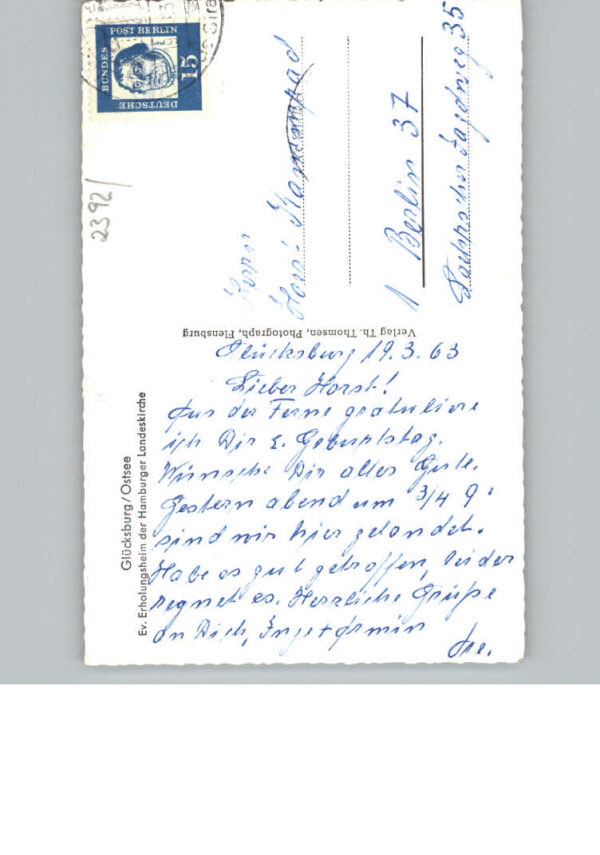 DEUTSCHE
BUNDES
POST BERLIN
15
2392/
Herrn
Horst
1 Berlin 37
35
Verlag Th. Thomsen, Photograph, Flensburg
Glücksburg/Ostsee
Ev. Erholungsheim der Hamburger Landeskirche
Glücksburg 19.3.63
Lieber Horst!
Aus der Ferne gratuliere
ich Dir z. Geburtstag.
Wünsche Dir alles Gute.
Gestern abend um 3/4 9
sind wir hier gelandet.
Habe es gut getroffen, leider
regnet es. Herzliche Grüße
an Dich, Inge + Armin